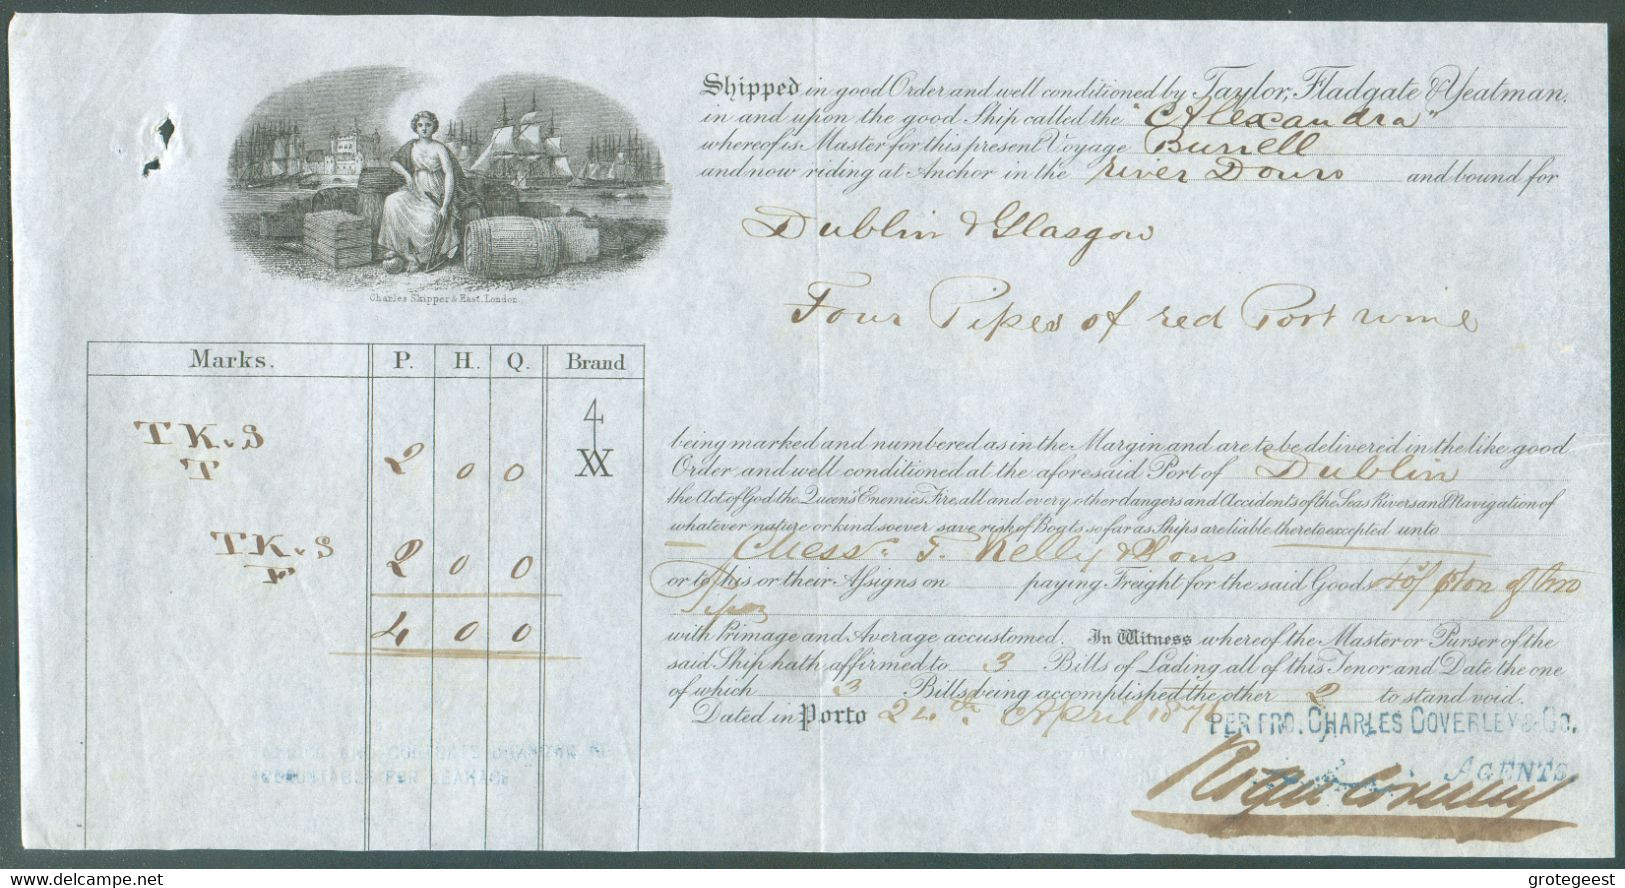 Shipped in good Order and well conditioned by Taylor, Fladgate & Yeatman.
in and upon the good Ship called the "Alexandra"
whereof is Master for this present Voyage Burrell
and now riding at Anchor in the river Douro and bound for
Dublin & Glasgow
Four Pipes of red Port wine
Charles Skipper & East. London
Marks. P. H. Q. Brand
4
TK&S
T 2 0 0 XX
TK&S
2 0 0
4 0 0
being marked and numbered as in the Margin and are to be delivered in the like good
Order and well conditioned at the aforesaid Port of Dublin
the Act of God, the Queen's Enemies Fire, all and every other dangers and Accidents of the Seas Rivers and Navigation of
whatever nature or kind soever save risk of Boats so far as Ships are liable thereto excepted unto
Mess. T. Kelly & Sons
or to this or their Assigns on paying Freight for the said Goods 40/ p ton of two
Pipes
with Primage and Average accustomed. In Witness whereof the Master or Purser of the
said Ship hath affirmed to 3 Bills of Lading all of this Tenor and Date the one
of which 3 Bills being accomplished the other 2 to stand void.
Dated in Porto 24th April 187
PER PRO. CHARLES COVERLEY & CO.
AGENTS
ACCOUNTABLE FOR LEAKAGE
grotegeest